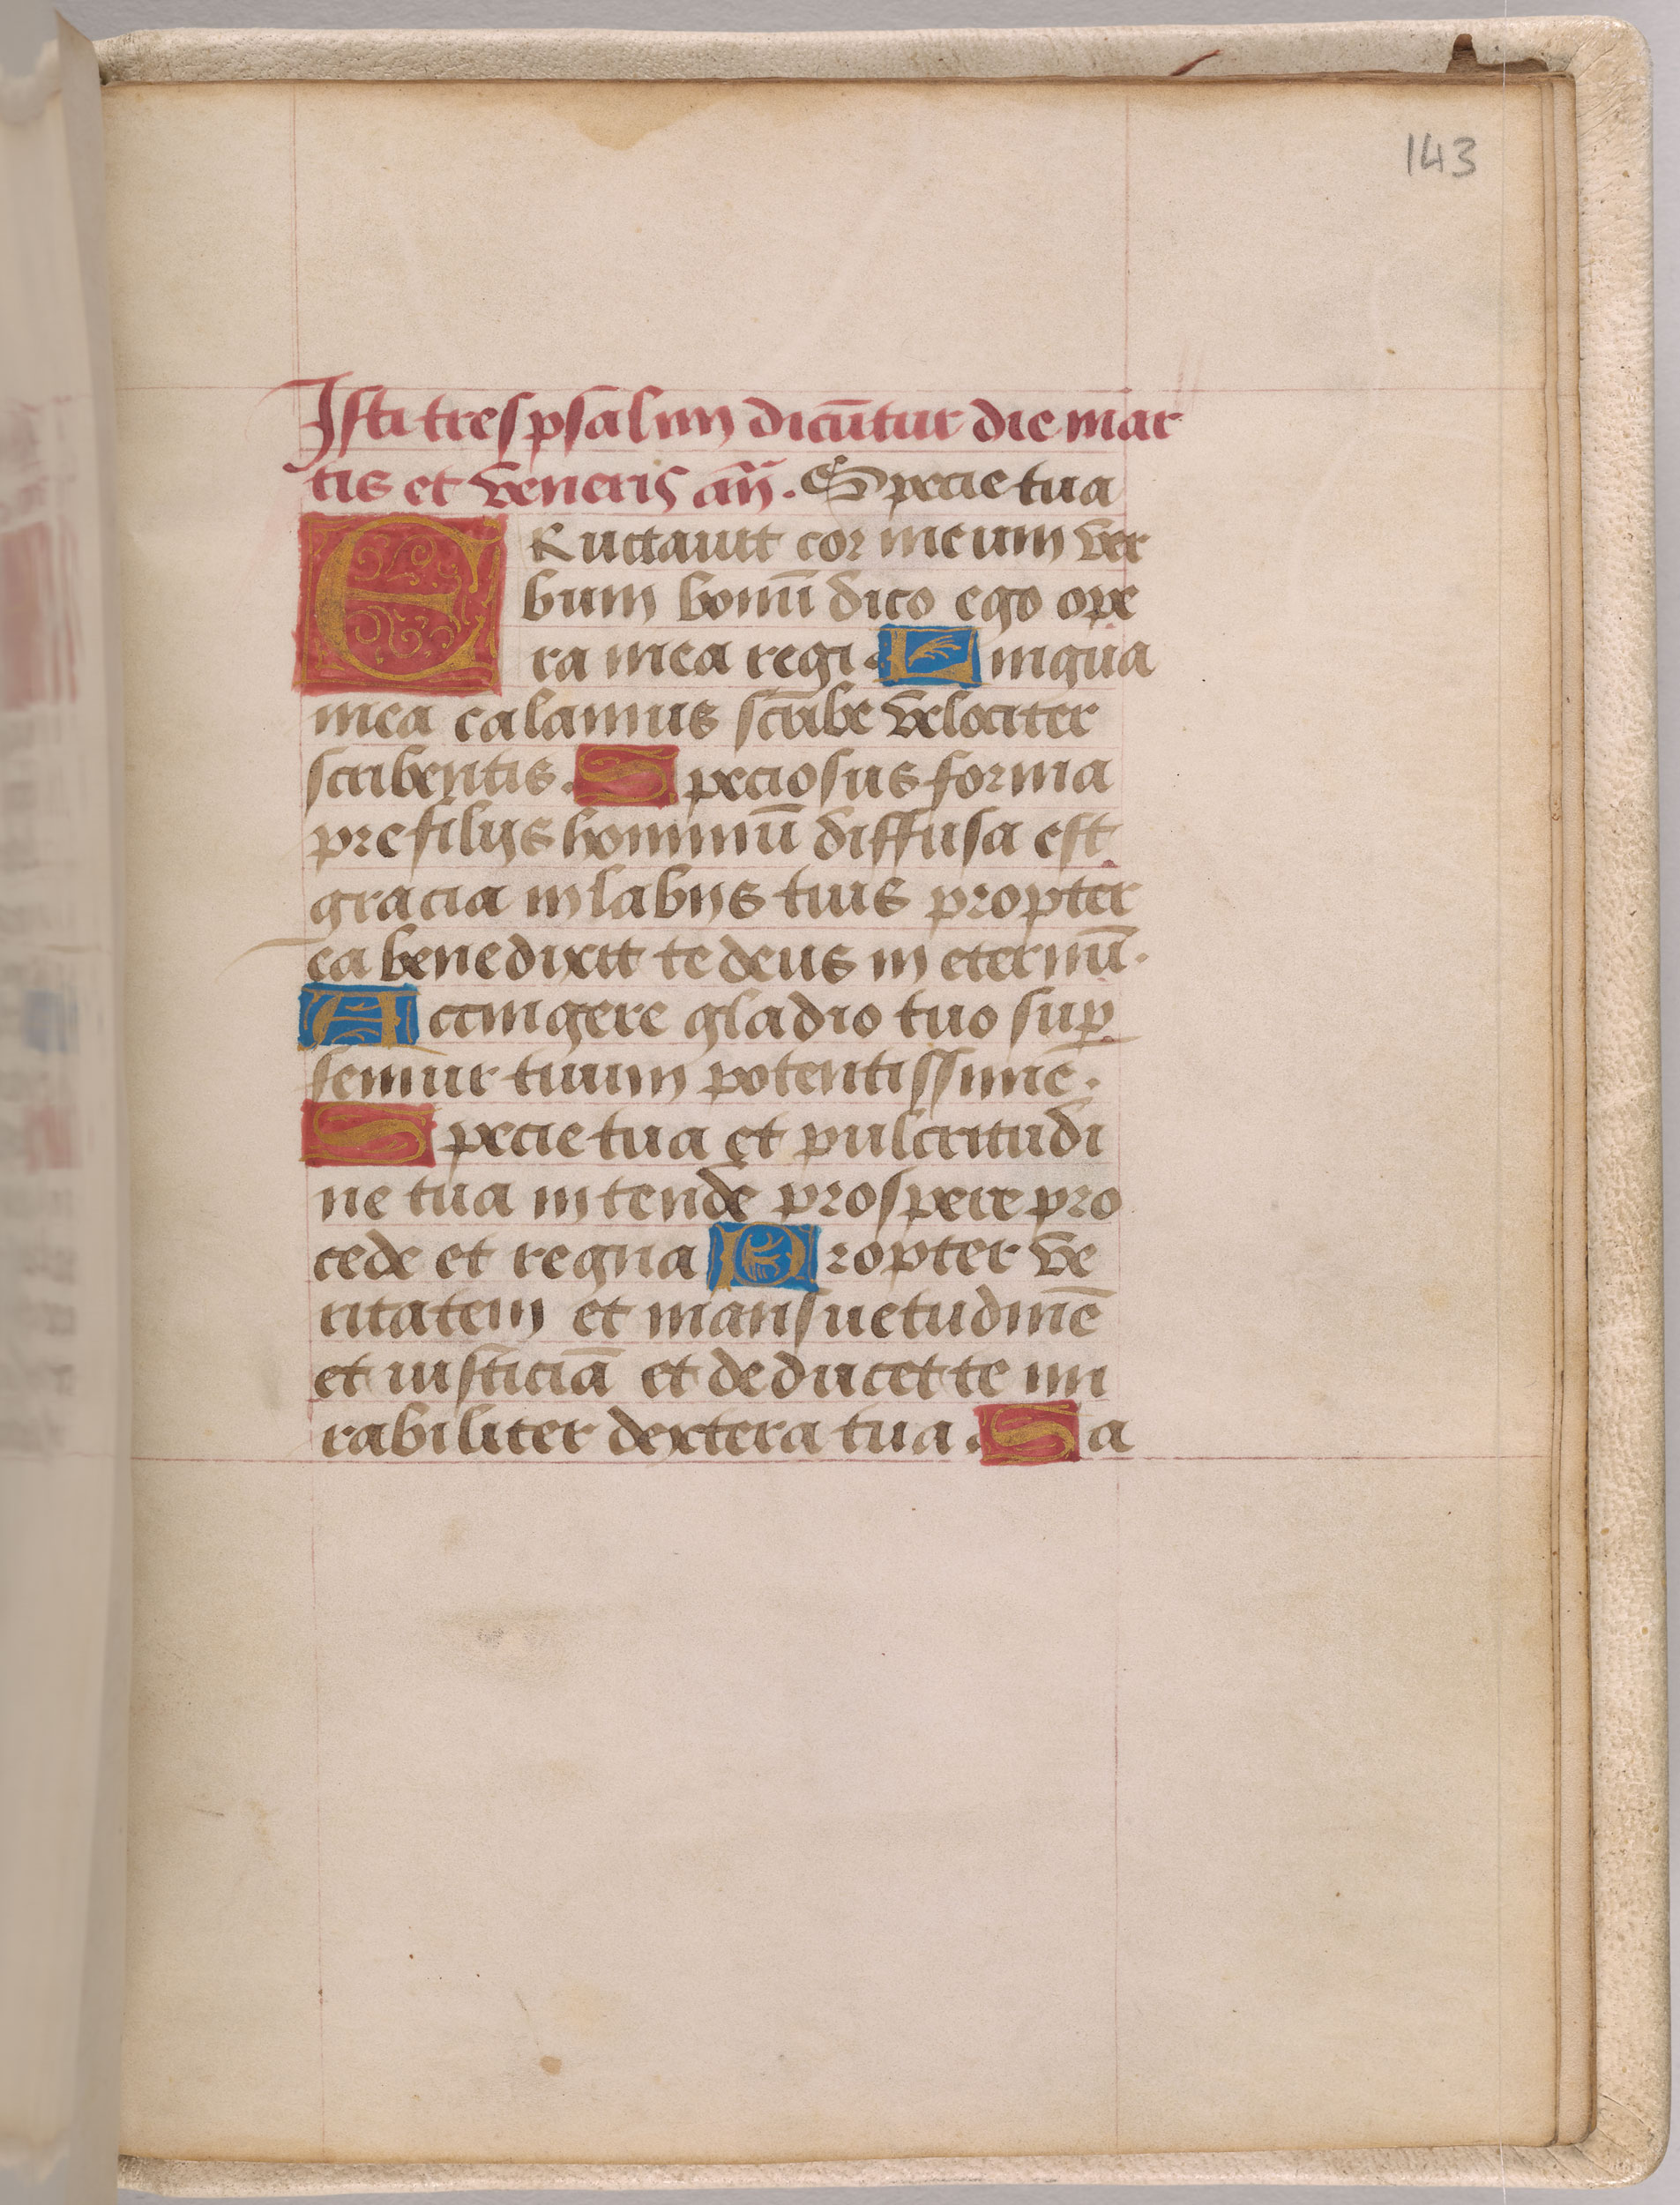 143
Isti tres psalmi dicūtur die mar
tis et veneris añ. Specie tua
ERuctauit cor meum ver
bum bonū dico ego ope
ra mea regi. Lingua
mea calamus scribe velociter
scribentis. Speciosus forma
pre filijs hominū diffusa est
gracia in labijs tuis propter
ea benedixit te deus in eternū.
Accingere gladio tuo sup
femur tuum potentissimē.
Specie tua et pulcritudi
ne tua intende prospere pro
cede et regna Propter ve
ritatem et mansuetudinē
et iusticiā et deducet te mi
rabiliter dextera tua. Sa